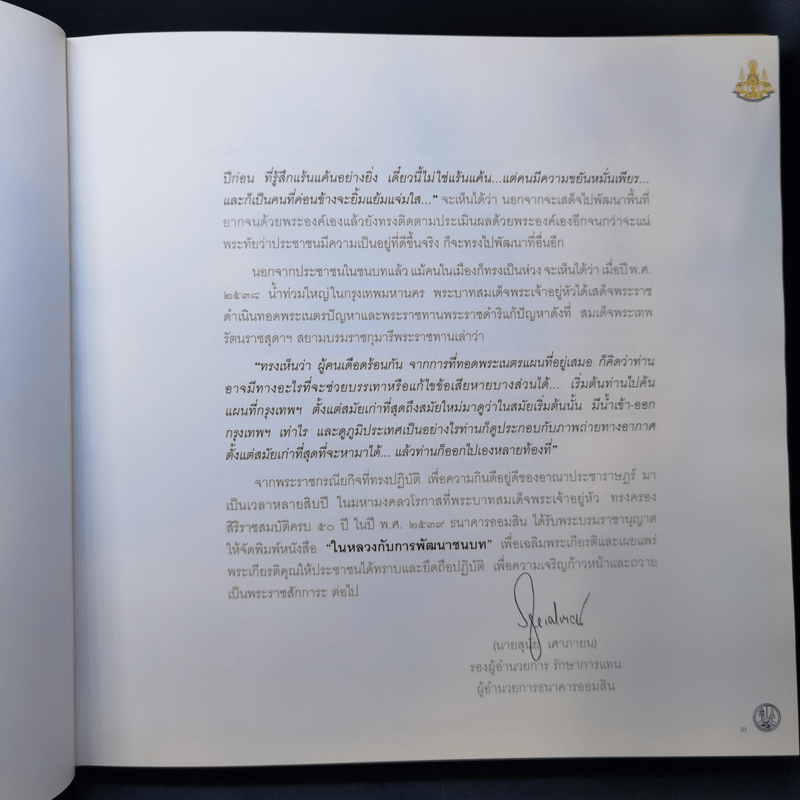 ปีก่อน ที่รู้สึกแร้นแค้นอย่างยิ่ง เดี๋ยวนี้ไม่ใช่แร้นแค้น...แต่คนมีความขยันหมั่นเพียร...
และก็เป็นคนที่ค่อนข้างจะยิ้มแย้มแจ่มใส..." จะเห็นได้ว่า นอกจากจะเสด็จไปพัฒนาพื้นที่
ยากจนด้วยพระองค์เองแล้วยังทรงติดตามประเมินผลด้วยพระองค์เองอีกจนกว่าจะแน่
พระทัยว่าประชาชนมีความเป็นอยู่ที่ดีขึ้นจริง ก็จะทรงไปพัฒนาที่อื่นอีก
นอกจากประชาชนในชนบทแล้ว แม้คนในเมืองก็ทรงเป็นห่วง จะเห็นได้ว่า เมื่อปี พ.ศ.
๒๕๓๘ น้ำท่วมใหญ่ในกรุงเทพมหานคร พระบาทสมเด็จพระเจ้าอยู่หัวได้เสด็จพระราช
ดำเนินทอดพระเนตรปัญหาและพระราชทานพระราชดำริแก้ปัญหาดังที่ สมเด็จพระเทพ
รัตนราชสุดาฯ สยามบรมราชกุมารีพระราชทานเล่าว่า
"ทรงเห็นว่า ผู้คนเดือดร้อนกัน จากการที่ทอดพระเนตรแผนที่อยู่เสมอ ก็คิดว่าท่าน
อาจมีทางอะไรที่จะช่วยบรรเทาหรือแก้ไขข้อเสียหายบางส่วนได้... เริ่มต้นท่านไปค้น
แผนที่กรุงเทพฯ ตั้งแต่สมัยเก่าที่สุดถึงสมัยใหม่มาดูว่าในสมัยเริ่มต้นนั้น มีน้ำเข้า-ออก
กรุงเทพฯ เท่าไร และดูภูมิประเทศเป็นอย่างไรท่านก็ดูประกอบกับภาพถ่ายทางอากาศ
ตั้งแต่สมัยเก่าที่สุดที่จะหามาได้... แล้วท่านก็ออกไปเองหลายท้องที่"
จากพระราชกรณียกิจที่ทรงปฏิบัติ เพื่อความกินดีอยู่ดีของอาณาประชาราษฎร์ มา
เป็นเวลาหลายสิบปี ในมหามงคลวโรกาสที่พระบาทสมเด็จพระเจ้าอยู่หัว ทรงครอง
สิริราชสมบัติครบ ๕๐ ปี ในปี พ.ศ. ๒๕๓๙ ธนาคารออมสิน ได้รับพระบรมราชานุญาต
ให้จัดพิมพ์หนังสือ "ในหลวงกับการพัฒนาชนบท" เพื่อเฉลิมพระเกียรติและเผยแพร่
พระเกียรติคุณให้ประชาชนได้ทราบและยึดถือปฏิบัติ เพื่อความเจริญก้าวหน้าและถวาย
เป็นพระราชสักการะ ต่อไป
(นายสุนัย เศาภายน)
รองผู้อำนวยการ รักษาการแทน
ผู้อำนวยการธนาคารออมสิน
๓